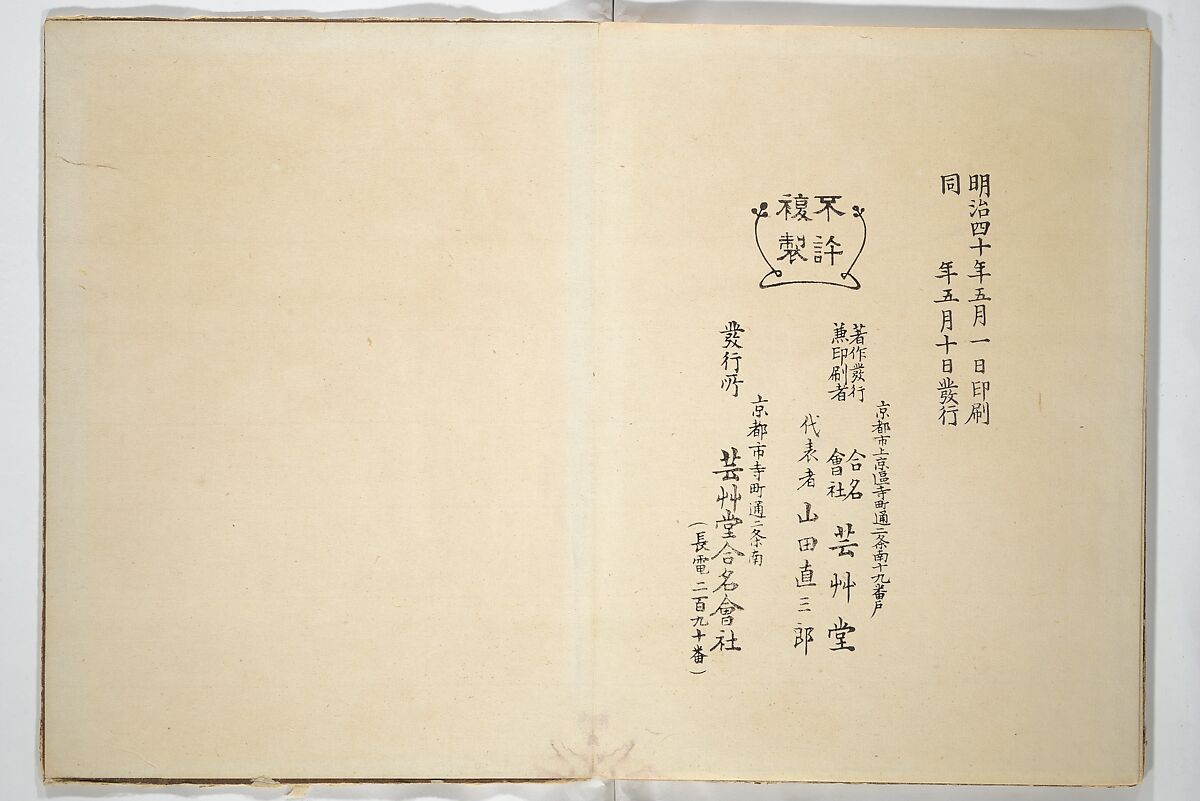 明治四十年五月一日印刷
同　　年五月十日發行
不許
複製
京都市上京區寺町通二条南十九番戸
著作發行
兼印刷者
合名
會社
芸艸堂
代表者 山田直三郎
京都市寺町通二条南
發行所 芸艸堂合名會社
(長電二百九十番)